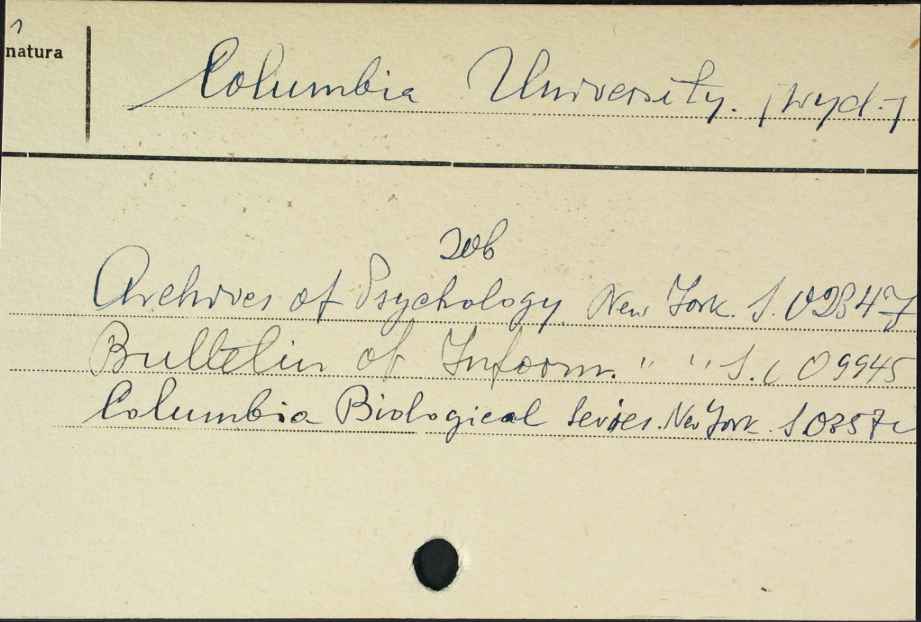 natura
Columbia University. [wyd.]
zob
Archives of Psychology. New York. S. 02847
Bulletin of Inform. " " S. 09945
Columbia Biological Series. New York. S